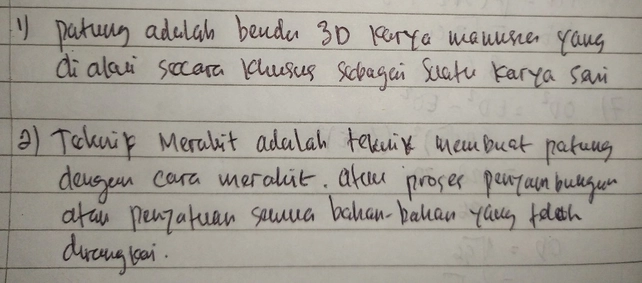 1) patung adalah benda 3D karya manusia yang
di akui secara khusus sebagai suatu karya seni
2) Teknik Merakit adalah teknik membuat patung
dengan cara merakit. atau proses penyambungan
atau penyatuan semua bahan-bahan yang telah
dirangkai.